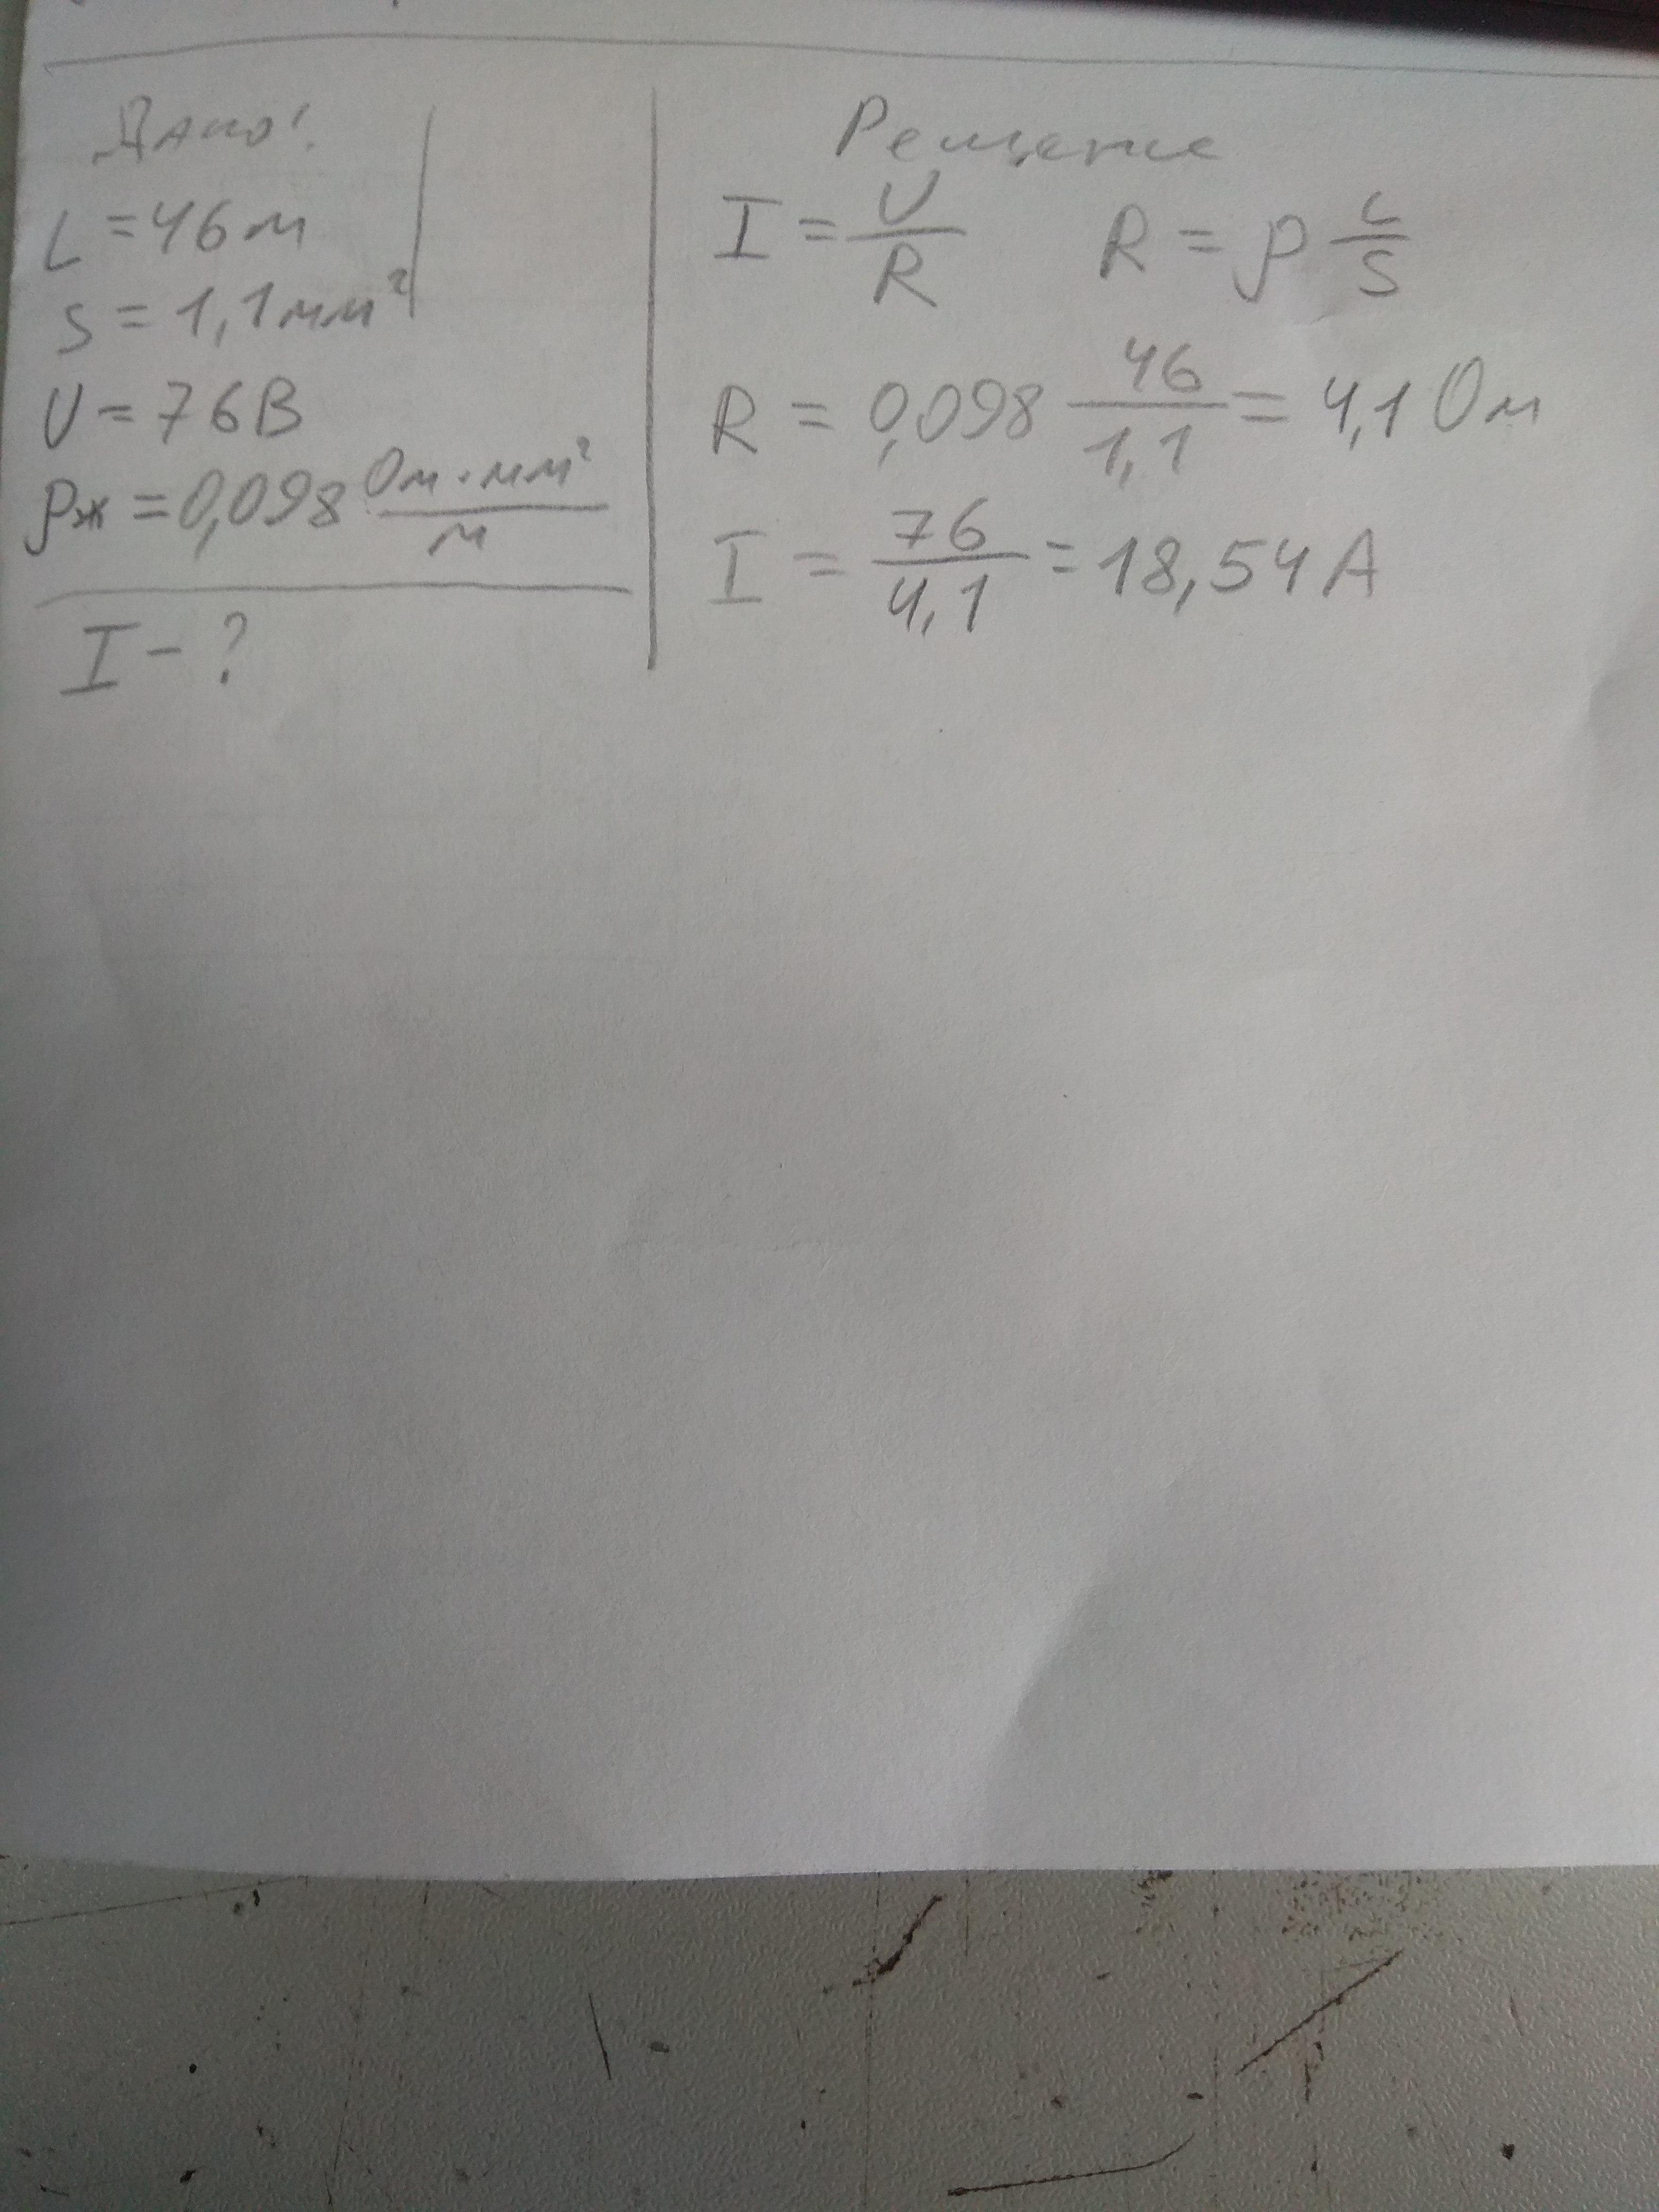 Дано:
L = 46 м
S = 1,1 мм²
U = 76 В
ρж = 0,098 Ом·мм²/м
I - ?
Решение
I = U/R R = ρ L/S
R = 0,098 46/1,1 = 4,1 Ом
I = 76/4,1 = 18,54 А